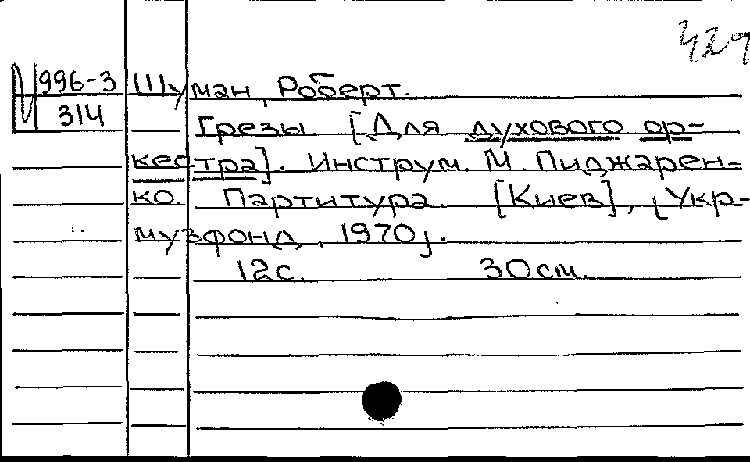 429
М 996-3 Шуман, Роберт.
314 Грезы. [Для духового ор-
кестра]. Инструм. М. Пиджарен-
ко. Партитура. [Киев], [Укр-
музфонд, 1970].
12 с. 30 см.